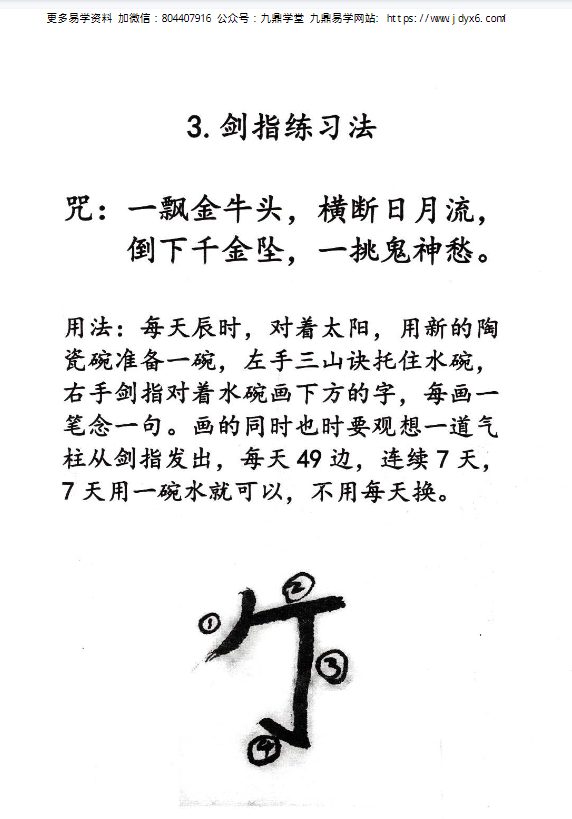 更多易学资料 加微信：804407916 公众号：九鼎学堂 九鼎易学网站: https://www.jdyx6.com/
3.剑指练习法
咒：一飘金牛头，横断日月流，
倒下千金坠，一挑鬼神愁。
用法：每天辰时，对着太阳，用新的陶
瓷碗准备一碗，左手三山诀托住水碗，
右手剑指对着水碗画下方的字，每画一
笔念一句。画的同时也时要观想一道气
柱从剑指发出，每天49边，连续7天，
7天用一碗水就可以，不用每天换。
②
①
③
④